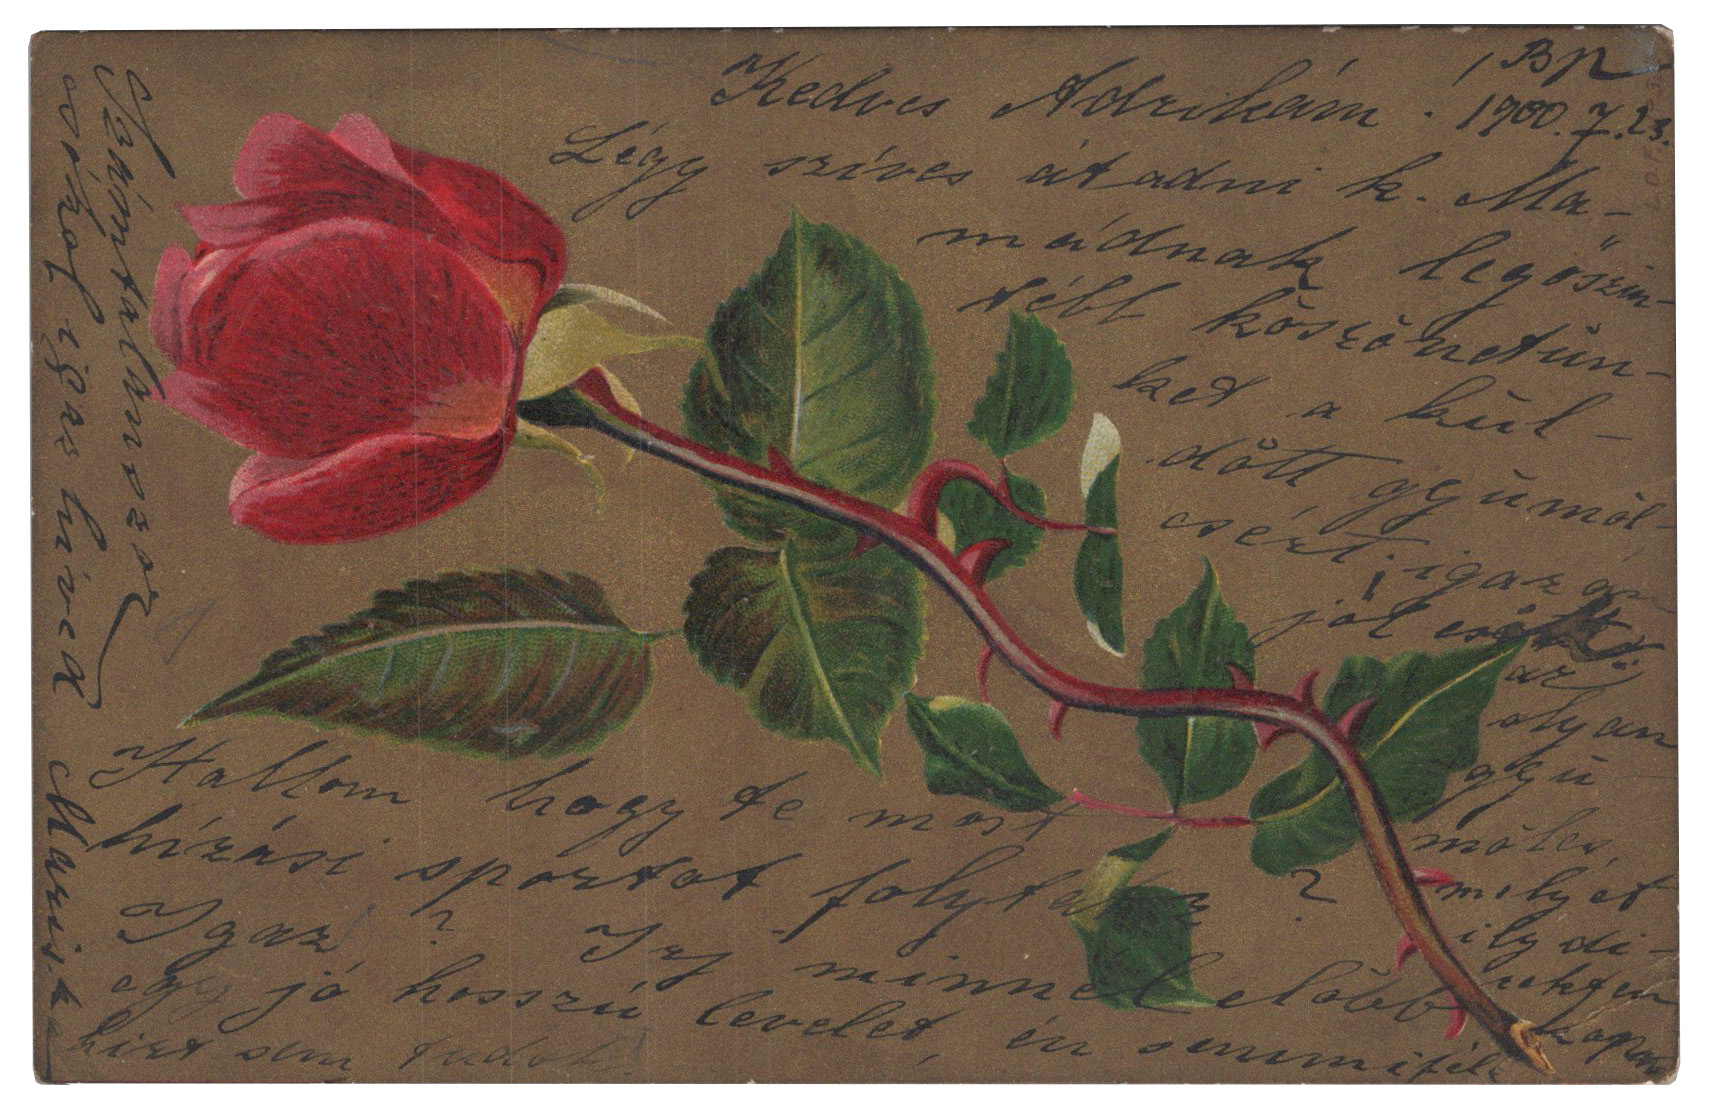 Bp
1900. 7. 23.
Kedves Adrikám.
Légy szíves átadni k. Ma-
mádnak legöszin-
tébb köszönetün-
ket a kül-
dött gyümöl-
csért; igazán
jól esett
az
olyan
gyü
mölcs,
milyet
ily di-
rekten
kapunk
Hallom hogy te most
hízási sportot folytatsz?
Igaz? Irj minnél előbb
egy jó hosszú levelet, én semmiféle
hirt sem tudok!
Számtalanszor
csókol igaz hived
Mariska